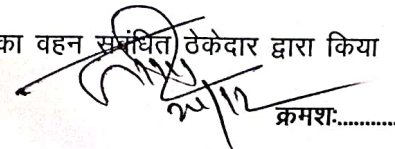 का वहन संबंधित ठेकेदार द्वारा किया
क्रमशः............